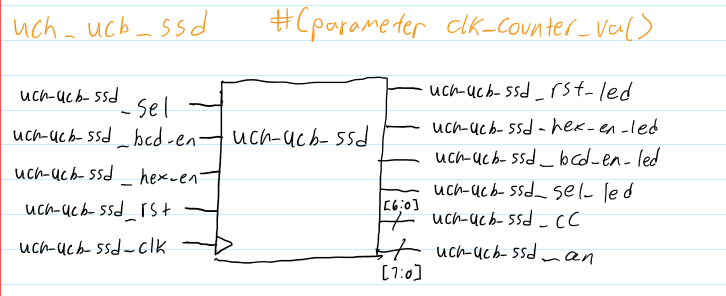 uch_ucb_ssd #(parameter clk_counter_val)
uch-ucb-ssd_sel
uch-ucb-ssd_bcd-en
uch-ucb-ssd_hex-en
uch-ucb-ssd_rst
uch-ucb-ssd-clk
uch-ucb-ssd
uch-ucb-ssd_rst-led
uch-ucb-ssd-hex-en-led
uch-ucb-ssd_bcd-en-led
uch-ucb-ssd_sel-led
[6:0]
uch-ucb-ssd_CC
uch-ucb-ssd_an
[7:0]